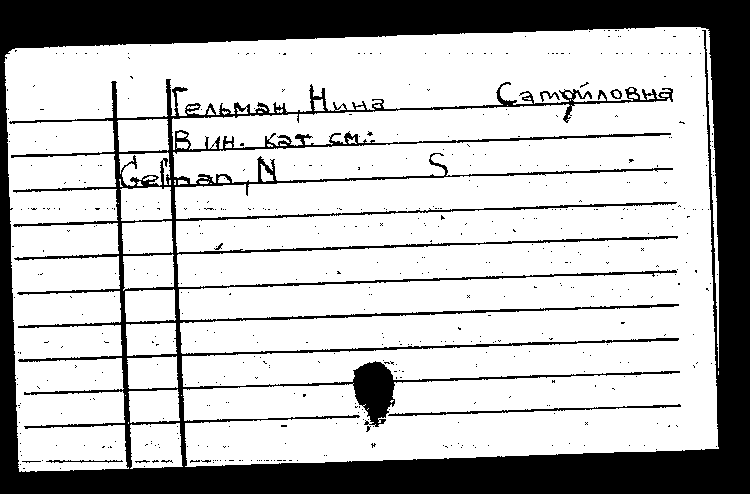 Гельман, Нина Самойловна
В ин. кат. см.:
Gelman, N S